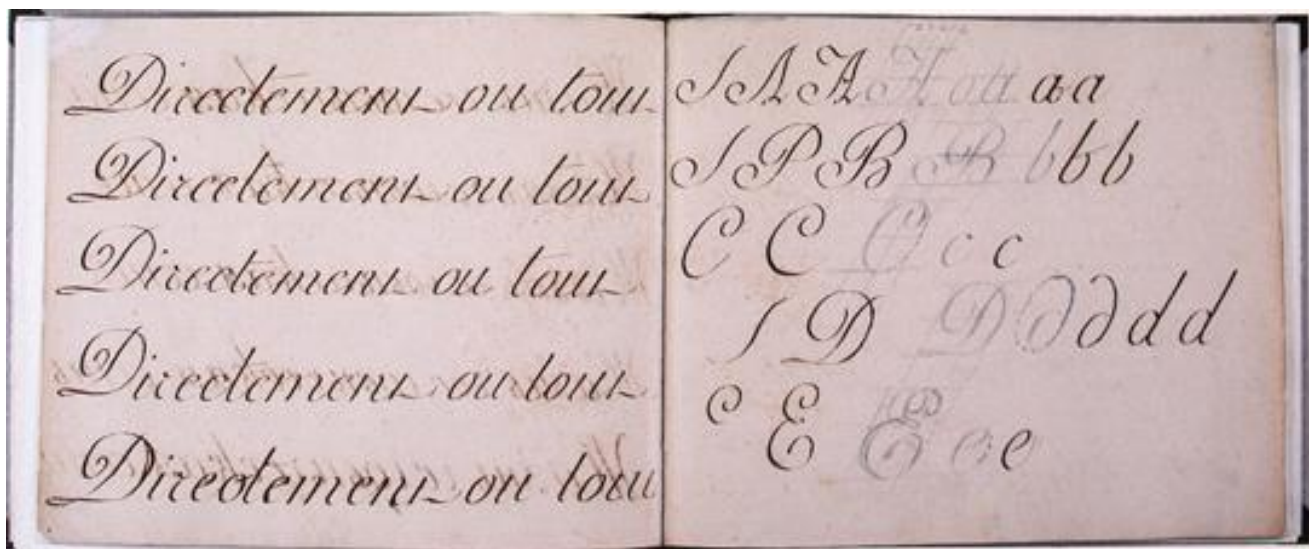 Directement ou tout
Directement ou tout
Directement ou tout
Directement ou tout
Directement ou tout
A A A a a a a
P B B b b b
C C C c c
D D d d d d
C E E e e